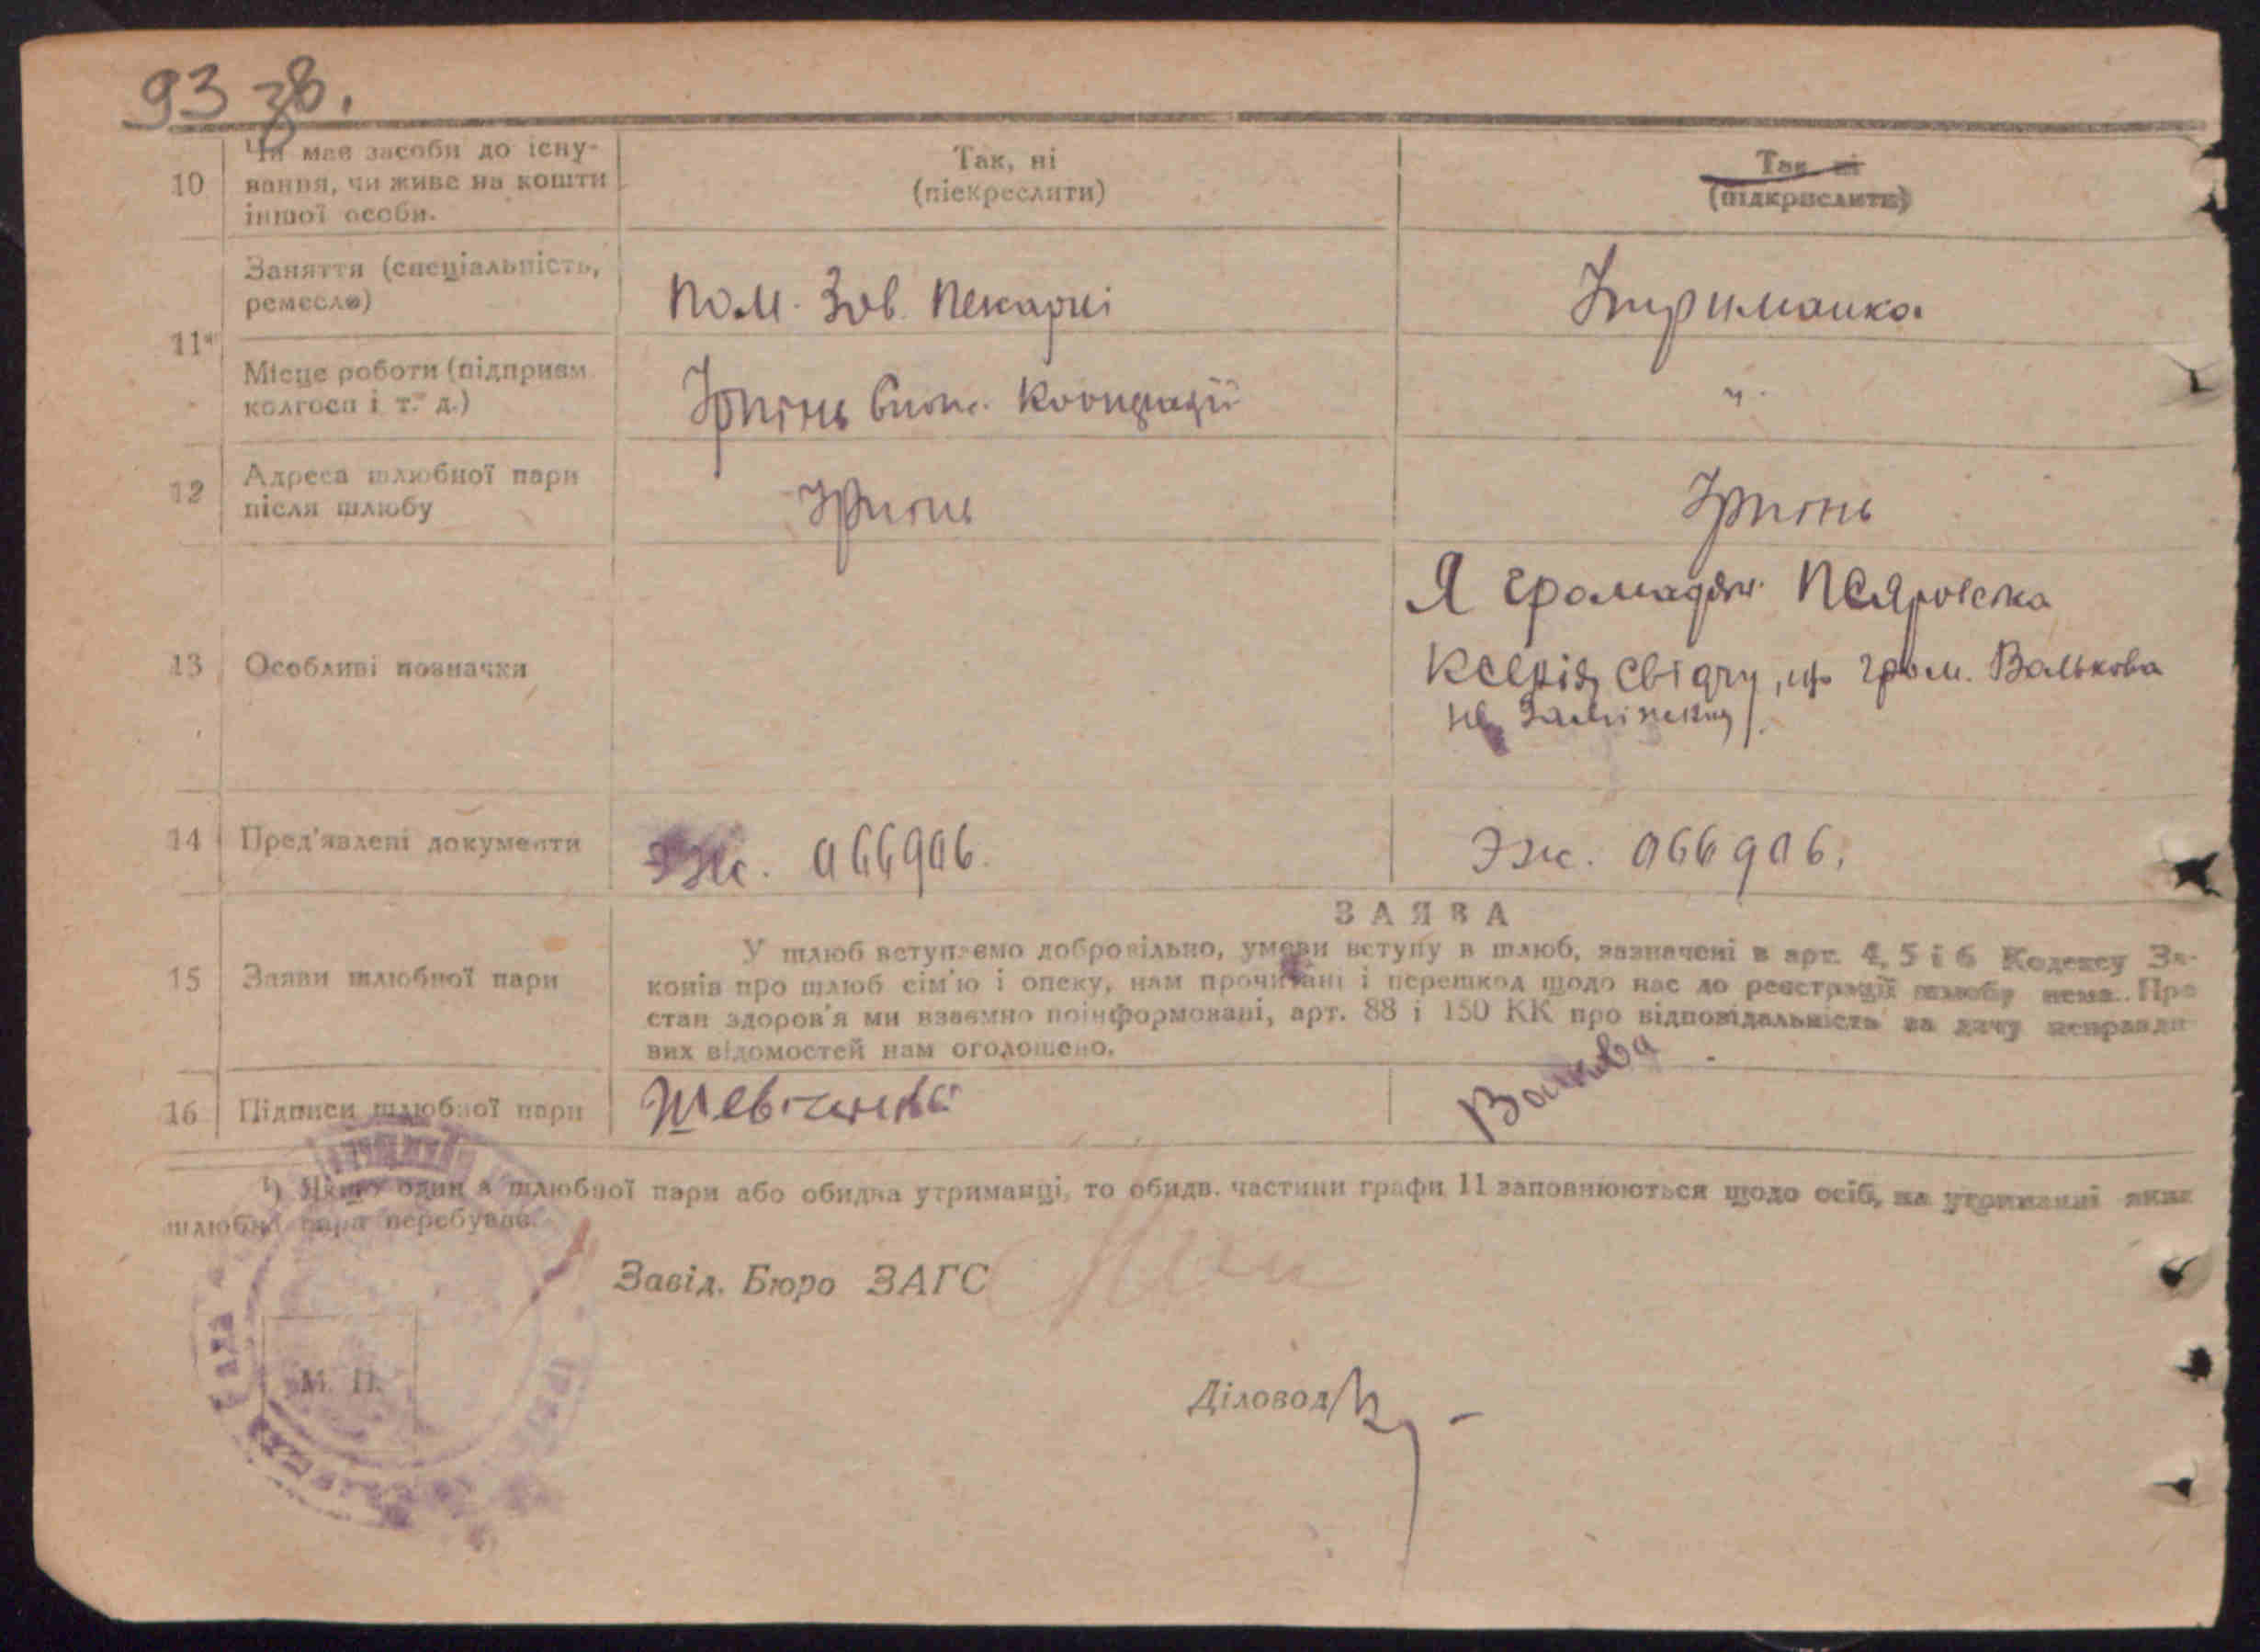 93 зв.
10 Чи має засоби до існу-
вання, чи живе на кошти
іншої особи.
Так, ні
(піекреслити)
Так, ні
(підкрислити)
11 Заняття (спеціальність,
ремесло)
Пом. Зав. Пекарні
Утриманка
Місце роботи (підприєм
колгосп і т. д.)
Ірпінь Кооперації
"
12 Адреса шлюбної пари
після шлюбу
Ірпінь
Ірпінь
13 Особливі позначки
Я громадян.
свідчу, що гром. Валькова
не заміжня
14 Пред'явлені документи
ЭЖ. 066906.
ЭЖ. 066906.
15 Заяви шлюбної пари
ЗАЯВА
У шлюб вступаємо добровільно, умови вступу в шлюб, зазначені в арт. 4, 5 і 6 Кодексу За-
конів про шлюб сім'ю і опеку, нам прочитані і перешкод щодо нас до реєстрації шлюбу нема. Про
стан здоров'я ми взаємно поінформовані, арт. 88 і 150 КК про відповідальність за дачу неправди-
вих відомостей нам оголошено.
16 Підписи шлюбної пари
Шевченко
Валькова
¹) Якщо один з шлюбної пари або обидва утриманці, то обидв. частини графи 11 заповнюються щодо осіб, на утриманні яких
шлюбна пара перебуває.
Завід. Бюро ЗАГС
М. П.
Діловод